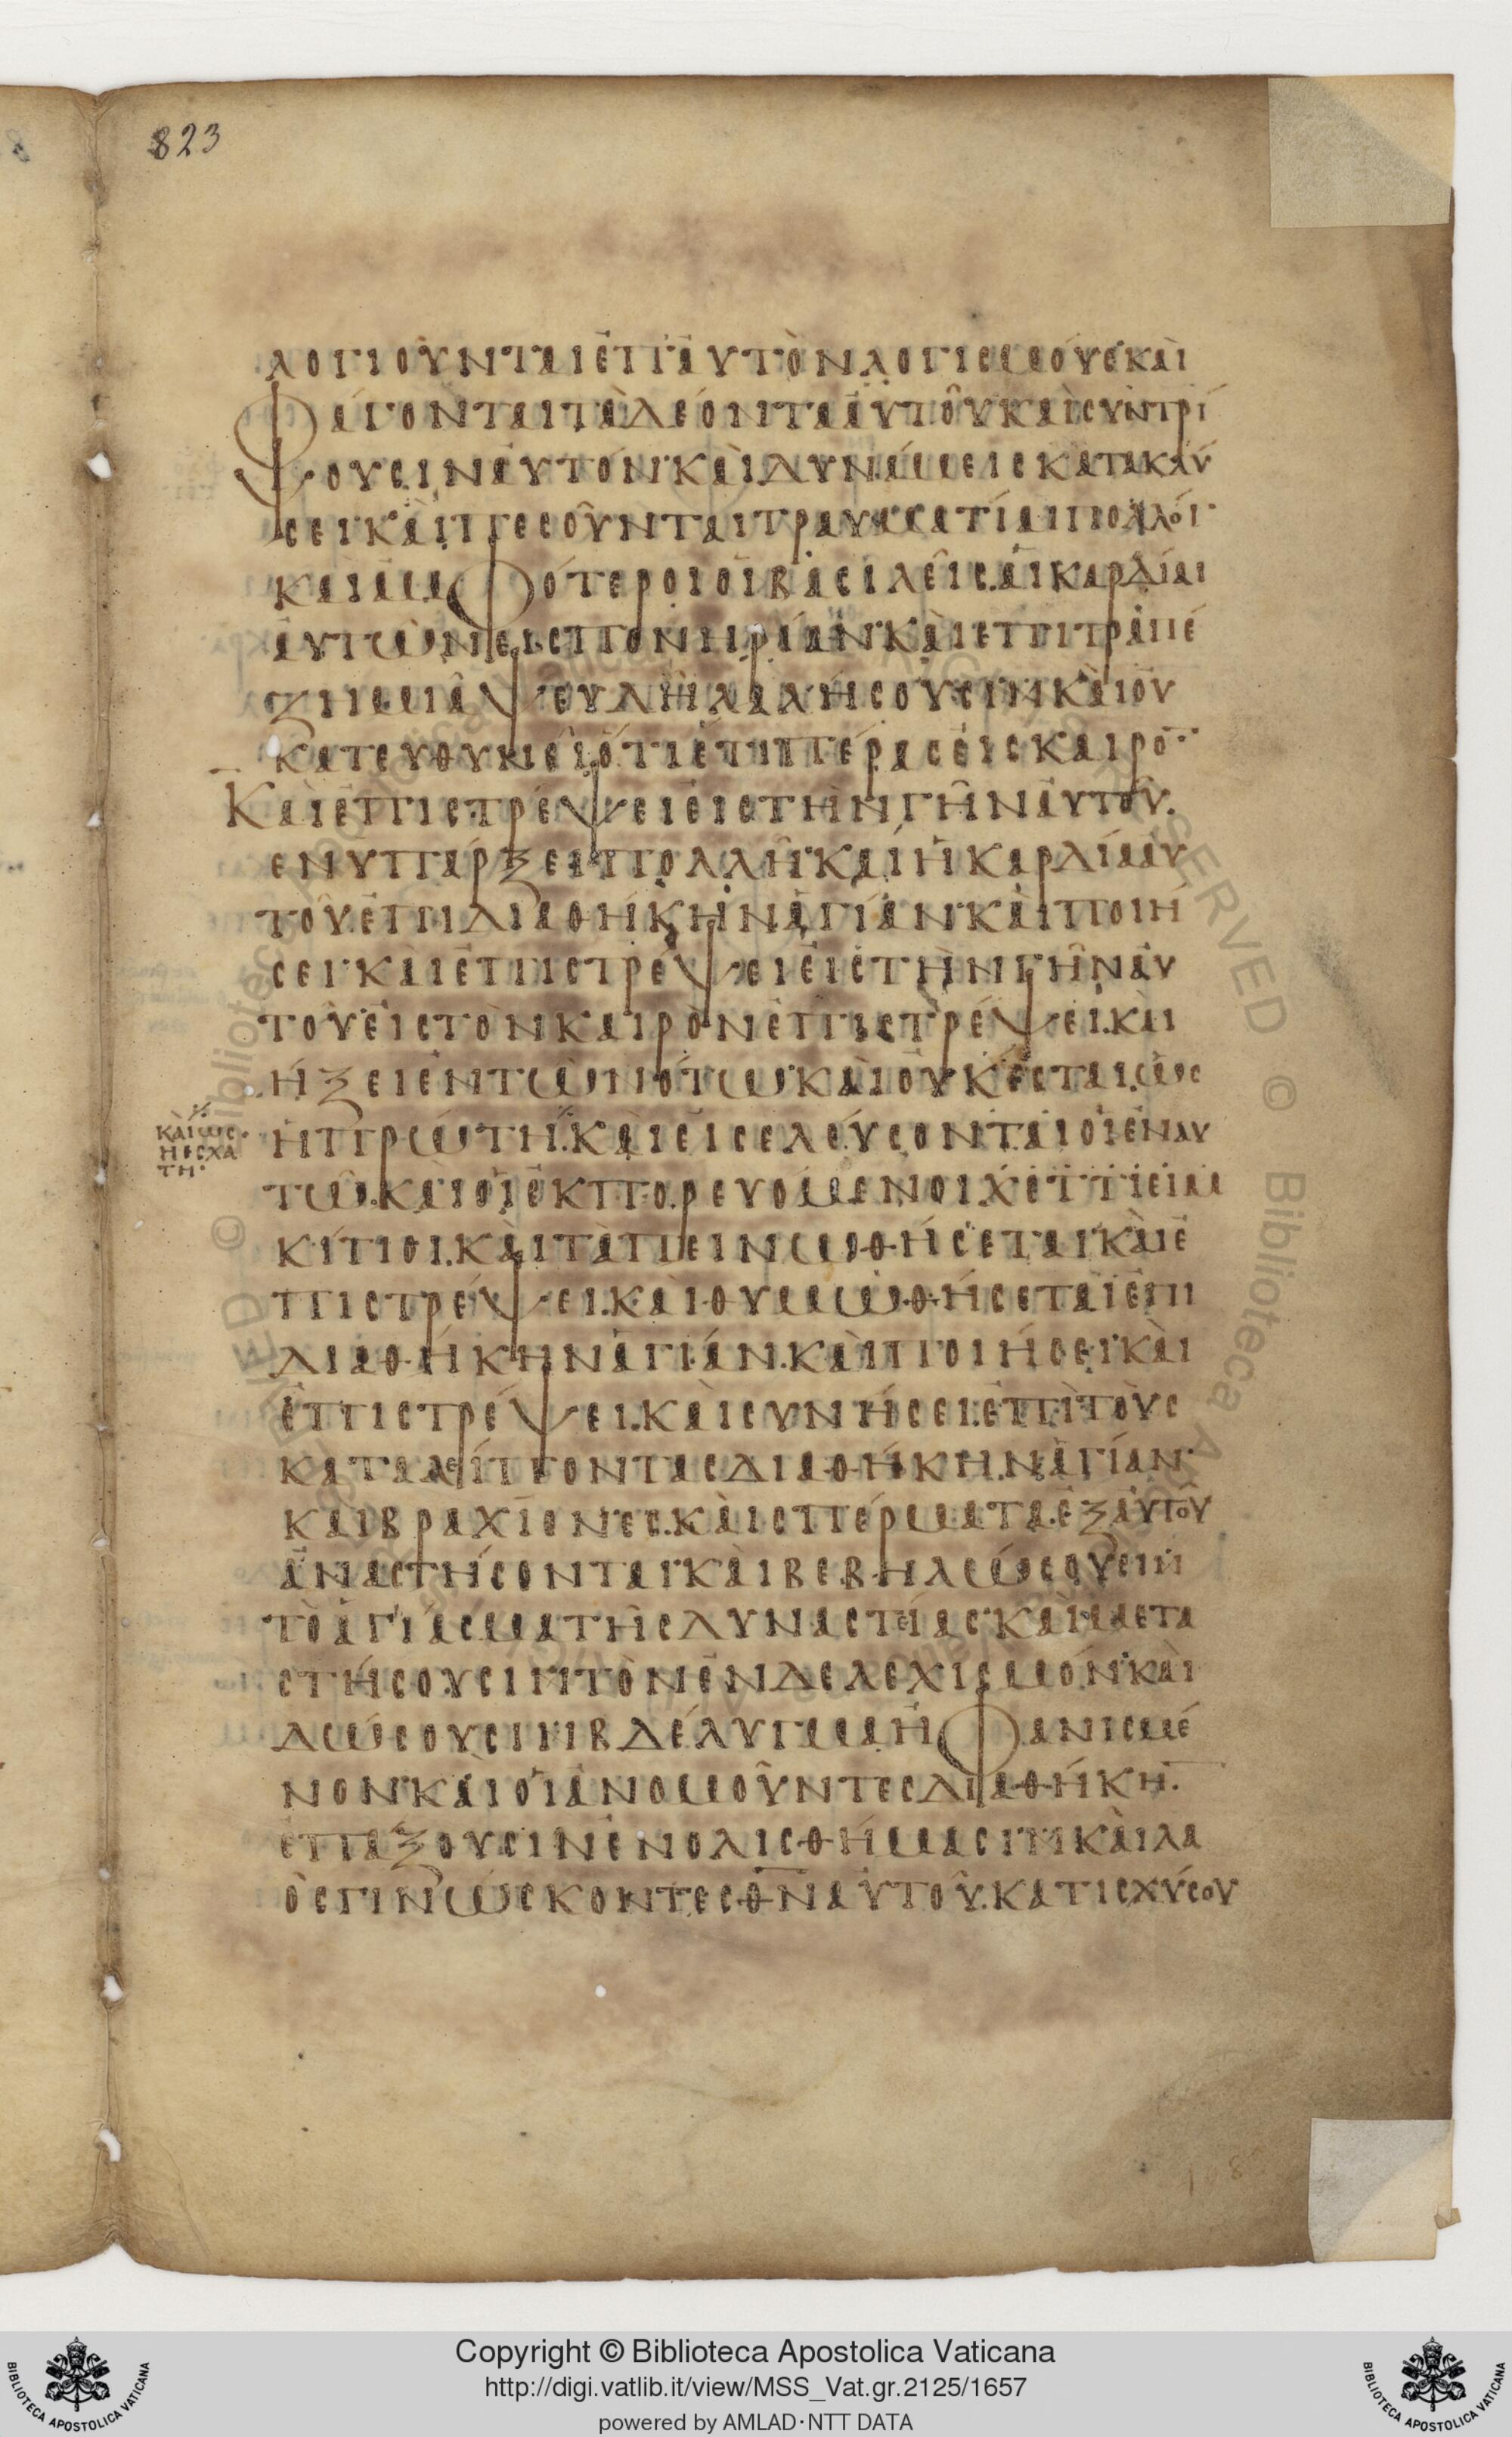 823
λογιοῦνται ἐπ' αὐτὸν λογισμούς· καὶ
φάγονται τὰ δέοντα αὐτοῦ καὶ συντρί
ψουσιν αὐτόν· καὶ δυνάμεις κατακλύ
σει· καὶ πεσοῦνται τραυματίαι πολλοί·
καὶ ἀμφότεροι οἱ βασιλεῖς. αἱ καρδίαι
αὐτῶν εἰς πονηρίαν· καὶ ἐπὶ τραπέ
ζῃ μιᾷ ψευδῆ λαλήσουσιν· καὶ οὐ
κατευθυνεῖ ὅτι ἔτι πέρας εἰς καιρό
Καὶ ἐπιστρέψει εἰς τὴν γῆν αὐτοῦ.
ἐν ὑπάρξει πολλῇ· καὶ ἡ καρδία αὐ
τοῦ ἐπὶ διαθήκην ἁγίαν· καὶ ποιή
σει· καὶ ἐπιστρέψει εἰς τὴν γῆν αὐ
τοῦ εἰς τὸν καιρὸν ἐπιστρέψει. καὶ
ἥξει ἐν τῷ νότῳ καὶ οὐκ ἔσται. ὡς
ἡ πρώτη. καὶ εἰσελεύσονται οἱ ἐν αὐ
καὶ ὡς
ἡ ἐσχά
τη·
τῷ. καὶ οἱ ἐκπορευόμενοι χέττιειμ
κίτιοι. καὶ ταπεινωθήσεται· καὶ ἐ
πιστρέψει. καὶ θυμωθήσεται ἐπὶ
διαθήκην ἁγίαν. καὶ ποιήσει· καὶ
ἐπιστρέψει. καὶ συνήσει. ἐπὶ τοὺς
καταλείποντας διαθήκην ἁγίαν·
καὶ βραχίονες. καὶ σπέρματα. ἐξ αὐτοῦ
ἀναστήσονται· καὶ βεβηλώσουσιν
τὸ ἁγίασμα τῆς δυναστείας· καὶ μετα
στήσουσιν τὸν ἐνδελεχισμόν· καὶ
δώσουσιν βδέλυγμα ἠφανισμέ
νον· καὶ οἱ ἀνομοῦντες διαθήκη
ἐπάξουσιν ἐν ὀλισθήμασιν· καὶ λα
ὸς γινώσκοντες θν αὐτοῦ. κατισχύσου
108
Copyright © Biblioteca Apostolica Vaticana
http://digi.vatlib.it/view/MSS_Vat.gr.2125/1657
powered by AMLAD·NTT DATA
BIBLIOTECA APOSTOLICA VATICANA
BIBLIOTECA APOSTOLICA VATICANA